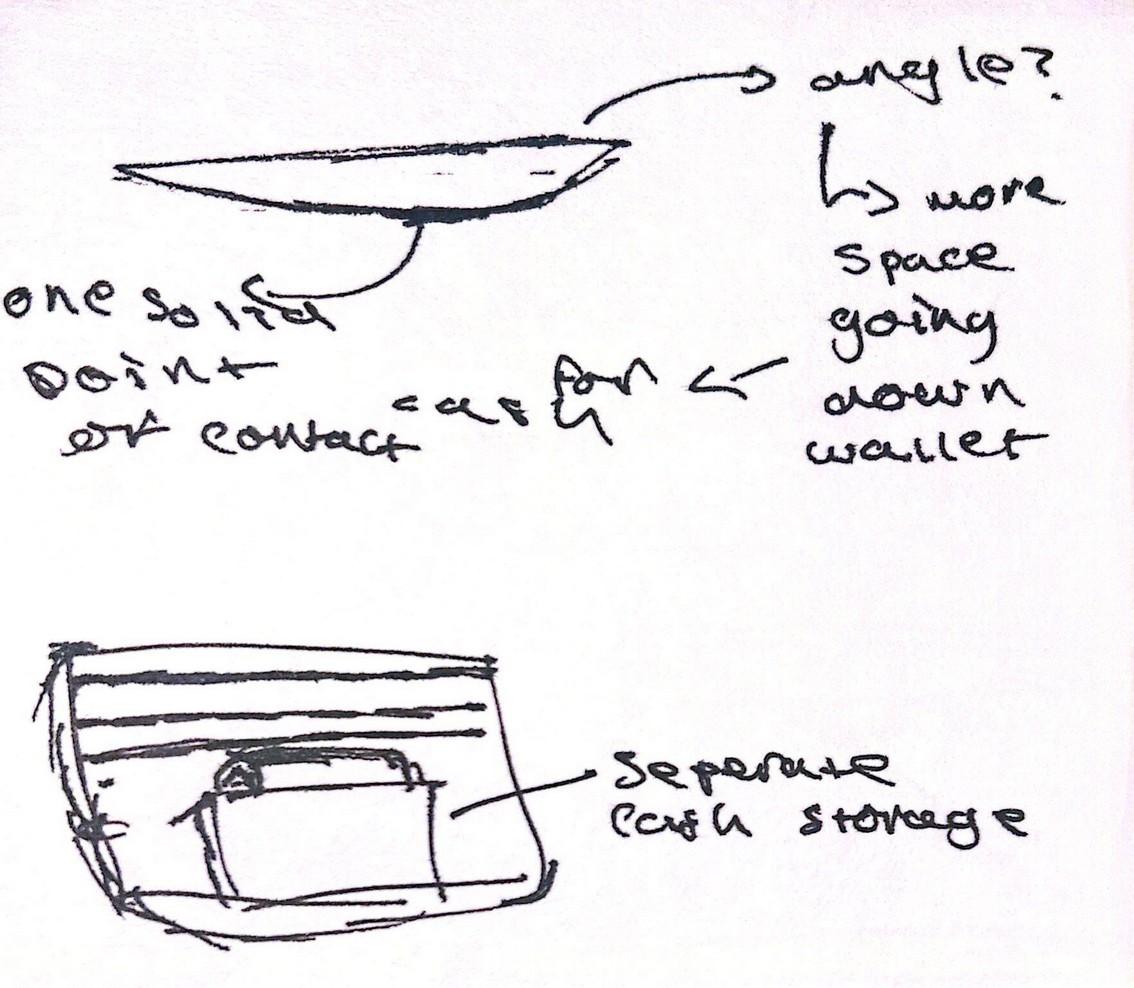 angle?
more
space
going
down
wallet
for
cash
one solid
point
of contact
seperate
cash storage